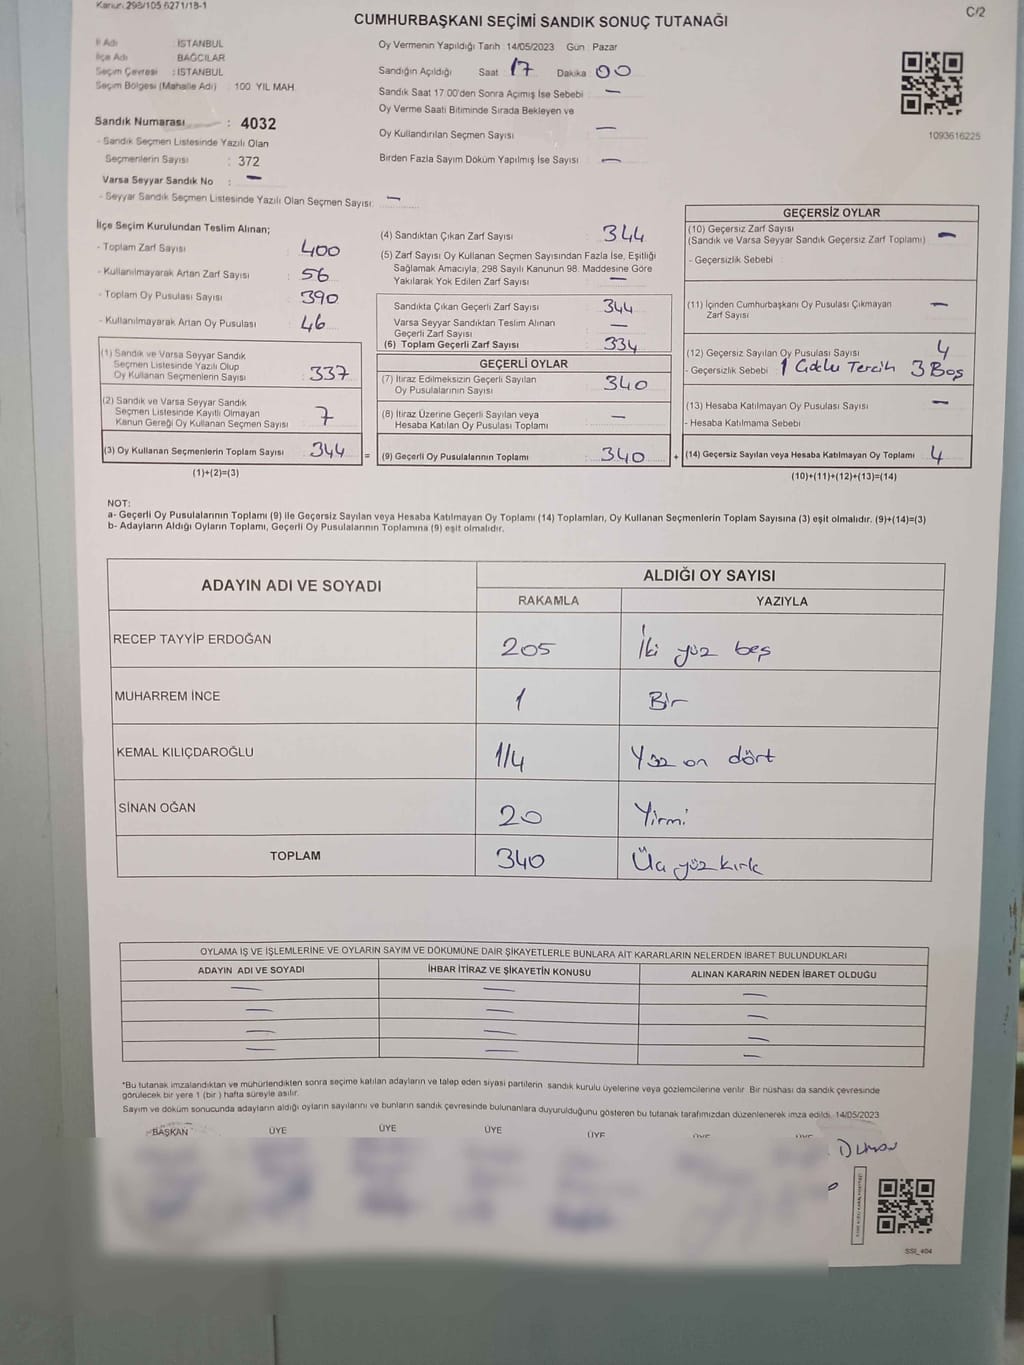 Kanun:298/105 6271/18-1
C/2
CUMHURBAŞKANI SEÇİMİ SANDIK SONUÇ TUTANAĞI
İl Adı : İSTANBUL
İlçe Adı : BAĞCILAR
Seçim Çevresi : İSTANBUL
Seçim Bölgesi (Mahalle Adı) : 100 YIL MAH.
Sandık Numarası : 4032
- Sandık Seçmen Listesinde Yazılı Olan
Seçmenlerin Sayısı : 372
Varsa Seyyar Sandık No : —
- Seyyar Sandık Seçmen Listesinde Yazılı Olan Seçmen Sayısı: —
Oy Vermenin Yapıldığı Tarih : 14/05/2023 Gün : Pazar
Sandığın Açıldığı Saat : 17 Dakika : 00
Sandık Saat 17:00'den Sonra Açımış İse Sebebi : —
Oy Verme Saati Bitiminde Sırada Bekleyen ve
Oy Kullandırılan Seçmen Sayısı : —
Birden Fazla Sayım Döküm Yapılmış İse Sayısı : —
1093616225
İlçe Seçim Kurulundan Teslim Alınan;
- Toplam Zarf Sayısı : 400
- Kullanılmayarak Artan Zarf Sayısı : 56
- Toplam Oy Pusulası Sayısı : 390
- Kullanılmayarak Artan Oy Pusulası : 46
(1) Sandık ve Varsa Seyyar Sandık
Seçmen Listesinde Yazılı Olup
Oy Kullanan Seçmenlerin Sayısı : 337
(2) Sandık ve Varsa Seyyar Sandık
Seçmen Listesinde Kayıtlı Olmayan
Kanun Gereği Oy Kullanan Seçmen Sayısı : 7
(3) Oy Kullanan Seçmenlerin Toplam Sayısı : 344
(1)+(2)=(3)
=
(4) Sandıktan Çıkan Zarf Sayısı : 344
(5) Zarf Sayısı Oy Kullanan Seçmen Sayısından Fazla İse, Eşitliği
Sağlamak Amacıyla, 298 Sayılı Kanunun 98. Maddesine Göre
Yakılarak Yok Edilen Zarf Sayısı : —
Sandıkta Çıkan Geçerli Zarf Sayısı : 344
Varsa Seyyar Sandıktan Teslim Alınan
Geçerli Zarf Sayısı : —
(6) Toplam Geçerli Zarf Sayısı : 334
GEÇERLİ OYLAR
(7) İtiraz Edilmeksizin Geçerli Sayılan
Oy Pusulalarının Sayısı : 340
(8) İtiraz Üzerine Geçerli Sayılan veya
Hesaba Katılan Oy Pusulası Toplamı : —
(9) Geçerli Oy Pusulalarının Toplamı : 340
+
GEÇERSİZ OYLAR
(10) Geçersiz Zarf Sayısı
(Sandık ve Varsa Seyyar Sandık Geçersiz Zarf Toplamı) : —
- Geçersizlik Sebebi :
(11) İçinden Cumhurbaşkanı Oy Pusulası Çıkmayan
Zarf Sayısı : —
(12) Geçersiz Sayılan Oy Pusulası Sayısı : 4
- Geçersizlik Sebebi : 1 Çoklu Tercih 3 Boş
(13) Hesaba Katılmayan Oy Pusulası Sayısı : —
- Hesaba Katılmama Sebebi :
(14) Geçersiz Sayılan veya Hesaba Katılmayan Oy Toplamı : 4
(10)+(11)+(12)+(13)=(14)
NOT:
a- Geçerli Oy Pusulalarının Toplamı (9) ile Geçersiz Sayılan veya Hesaba Katılmayan Oy Toplamı (14) Toplamları, Oy Kullanan Seçmenlerin Toplam Sayısına (3) eşit olmalıdır. (9)+(14)=(3)
b- Adayların Aldığı Oyların Toplamı, Geçerli Oy Pusulalarının Toplamına (9) eşit olmalıdır.
ADAYIN ADI VE SOYADI
ALDIĞI OY SAYISI
RAKAMLA YAZIYLA
RECEP TAYYİP ERDOĞAN 205 İki yüz beş
MUHARREM İNCE 1 Bir
KEMAL KILIÇDAROĞLU 114 Yüz on dört
SİNAN OĞAN 20 Yirmi
TOPLAM 340 Üç yüz kırk
OYLAMA İŞ VE İŞLEMLERİNE VE OYLARIN SAYIM VE DÖKÜMÜNE DAİR ŞİKAYETLERLE BUNLARA AİT KARARLARIN NELERDEN İBARET BULUNDUKLARI
ADAYIN ADI VE SOYADI İHBAR İTİRAZ VE ŞİKAYETİN KONUSU ALINAN KARARIN NEDEN İBARET OLDUĞU
— — —
— — —
— — —
— — —
*Bu tutanak imzalandıktan ve mühürlendikten sonra seçime katılan adayların ve talep eden siyasi partilerin sandık kurulu üyelerine veya gözlemcilerine verilir. Bir nüshası da sandık çevresinde
görülecek bir yere 1 (bir ) hafta süreyle asılır.
Sayım ve döküm sonucunda adayların aldığı oyların sayılarını ve bunların sandık çevresinde bulunanlara duyurulduğunu gösteren bu tutanak tarafımızdan düzenlenerek imza edildi. 14/05/2023
BAŞKAN ÜYE ÜYE ÜYE ÜYE ÜYE ÜYE
SSI_404